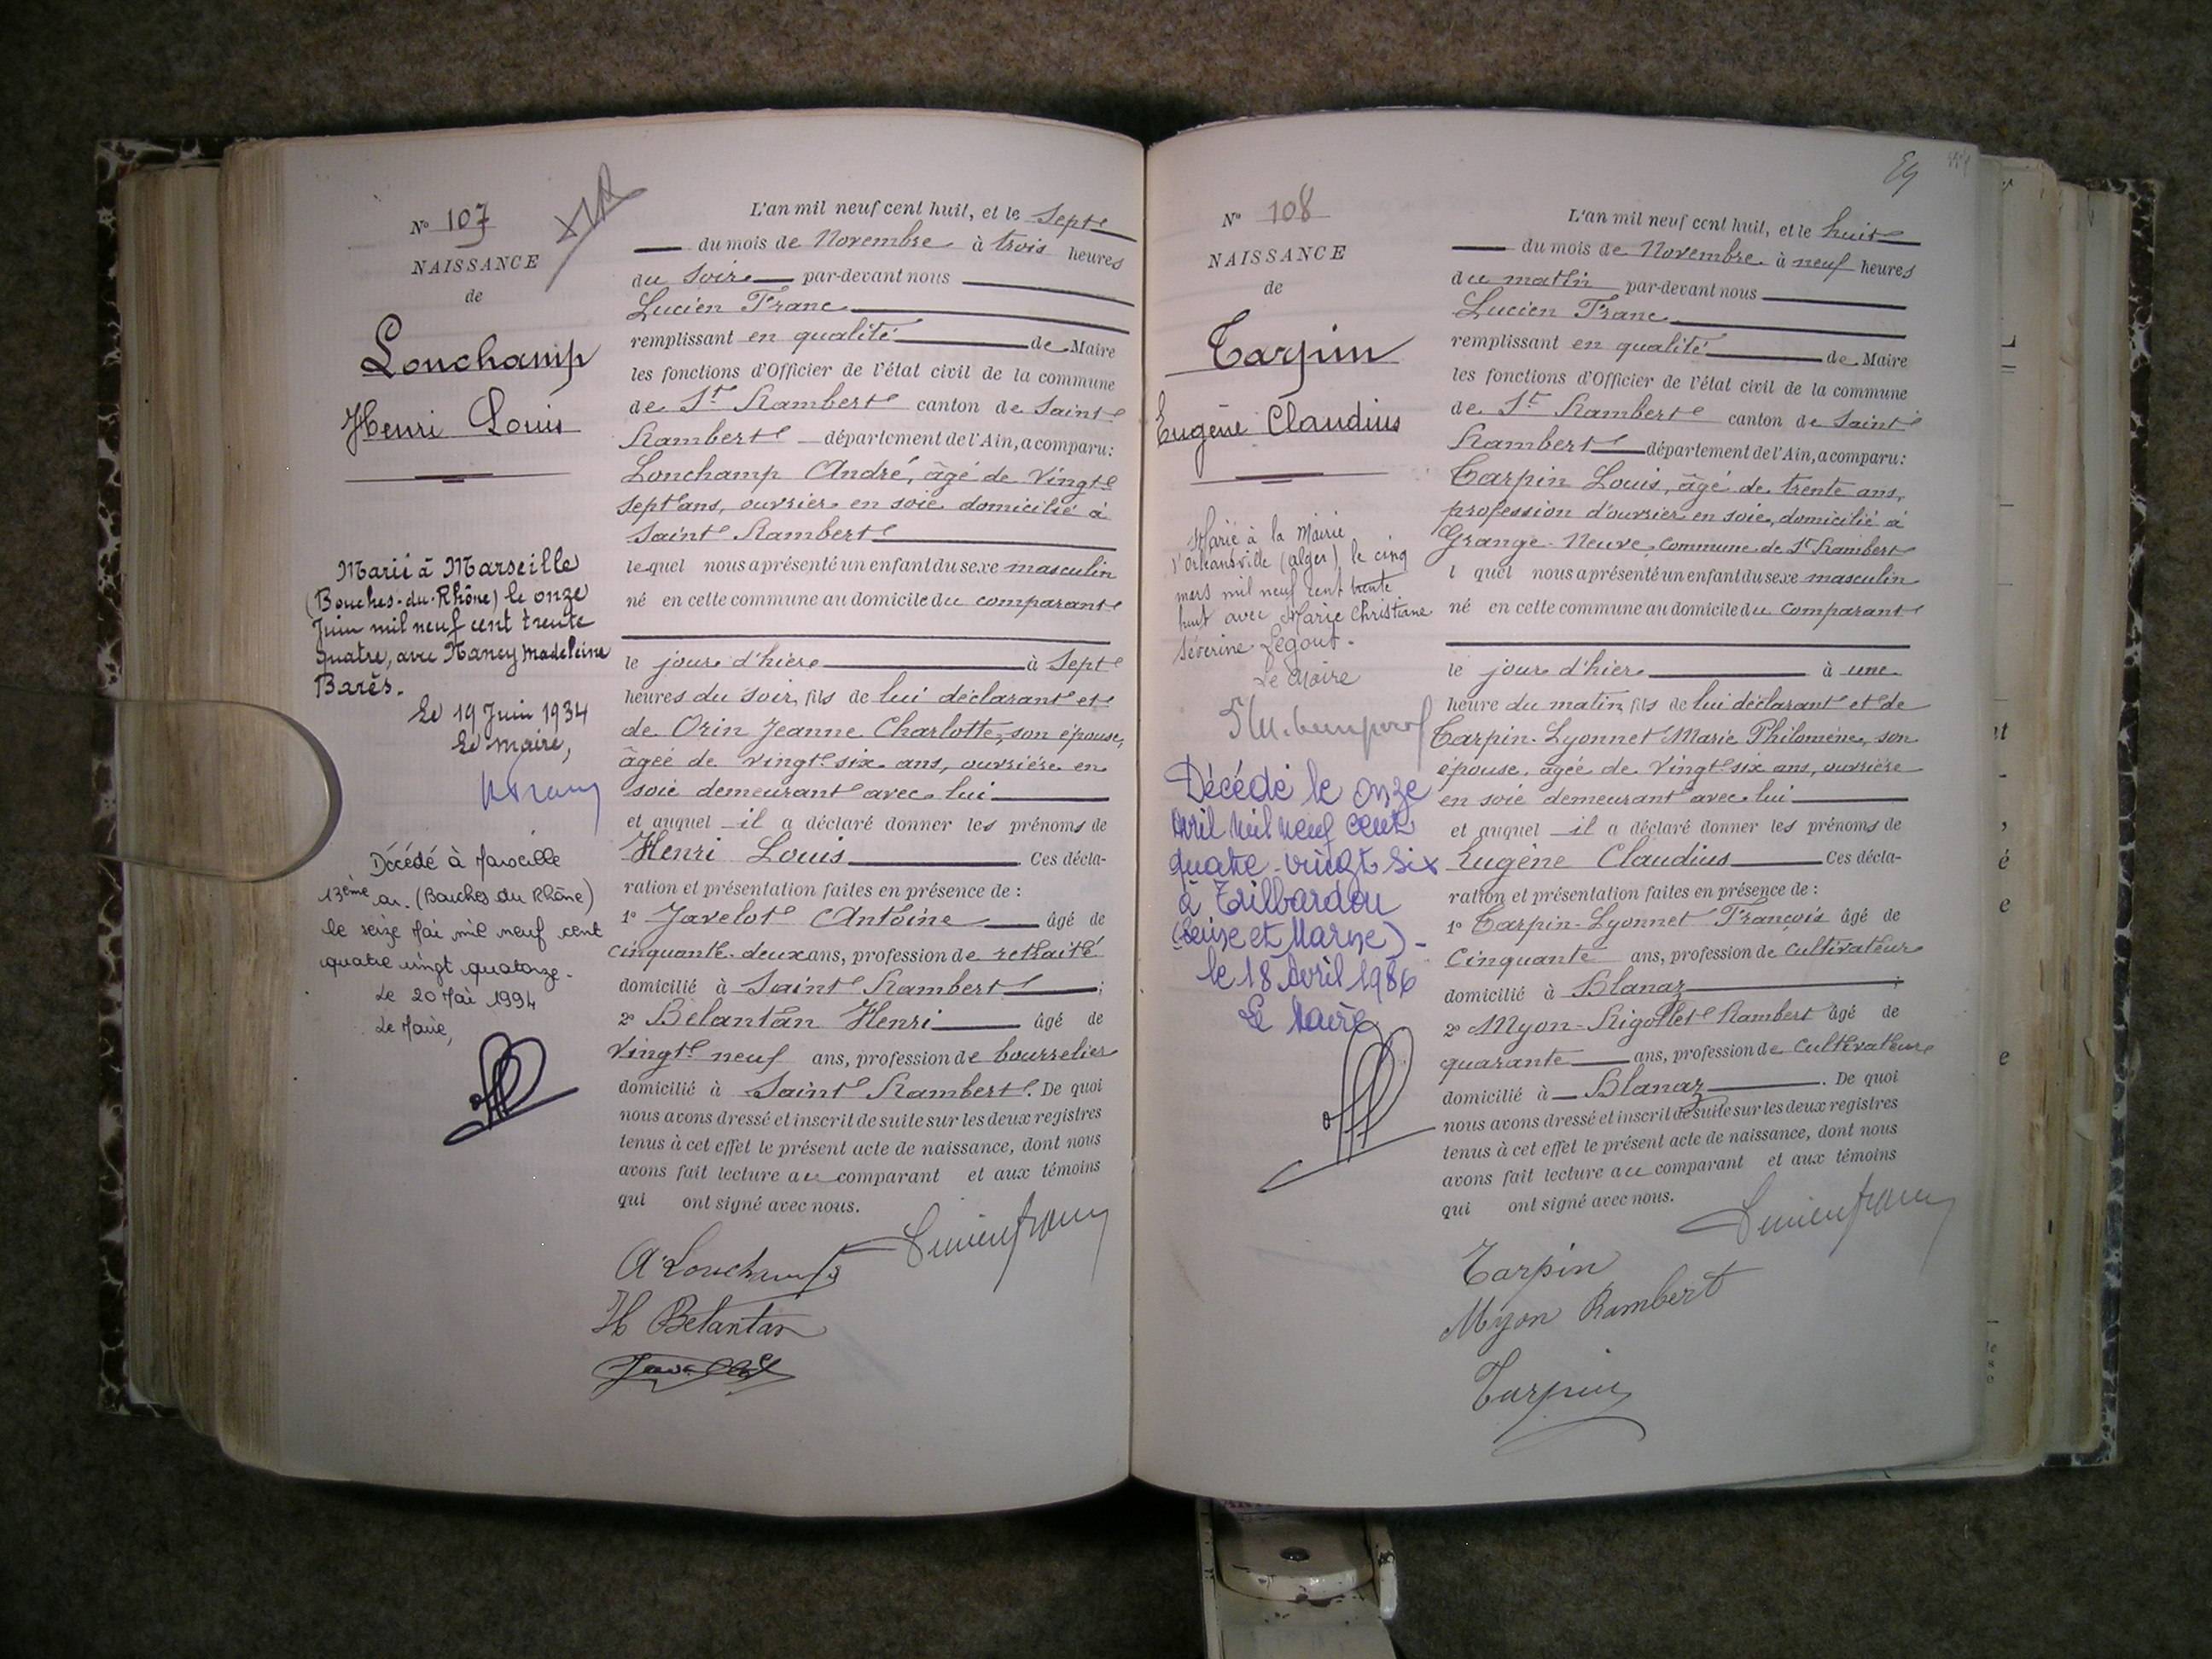 N° 107
NAISSANCE
de
Lonchamp
Henri Louis
Marié à Marseille
(Bouches-du-Rhône) le onze
Juin mil neuf cent trente
quatre, avec Nancy Madeleine
Barès.
Le 19 Juin 1934
Le maire,
Décédé à Marseille
13ème ar. (Bouches du Rhône)
le seize Mai mil neuf cent
quatre vingt quatorze.
Le 20 Mai 1994
Le Maire,
L'an mil neuf cent huit, et le Sept
du mois de Novembre à trois heures
du Soir par-devant nous
Lucien Franc
remplissant en qualité de Maire
les fonctions d'Officier de l'état civil de la commune
de St Rambert canton de Saint
Rambert département de l'Ain, a comparu:
Lonchamp André, âgé de Vingt
sept ans, ouvrier en soie domicilié à
Saint Rambert
lequel nous a présenté un enfant du sexe masculin
né en cette commune au domicile du comparant
le jour d'hier à Sept
heures du soir, fils de lui déclarant et
de Orin Jeanne Charlotte, son épouse,
âgée de vingt six ans, ouvrière en
soie demeurant avec lui
et auquel il a déclaré donner les prénoms de
Henri Louis Ces décla-
ration et présentation faites en présence de :
1° Javelot Antoine âgé de
cinquante-deux ans, profession de retraité
domicilié à Saint Rambert ;
2° Belantan Henri âgé de
Vingt neuf ans, profession de bourrelier
domicilié à Saint Rambert. De quoi
nous avons dressé et inscrit de suite sur les deux registres
tenus à cet effet le présent acte de naissance, dont nous
avons fait lecture au comparant et aux témoins
qui ont signé avec nous.
A Lonchamp
Lucien franc
H Belantan
N° 108
NAISSANCE
de
Tarpin
Eugène Claudius
Marié à la Mairie
d'Orléansville (alger), le cinq
mars mil neuf cent trente
huit avec Marie Christiane
Séverine Legout.
Le Maire
Décédé le onze
avril mil neuf cent
quatre-vingt six
à Trilbardou
(Seine et Marne) -
le 18 Avril 1986
Le Maire
L'an mil neuf cent huit, et le huit
du mois de Novembre à neuf heures
du matin par-devant nous
Lucien Franc
remplissant en qualité de Maire
les fonctions d'Officier de l'état civil de la commune
de St Rambert canton de Saint
Rambert département de l'Ain, a comparu:
Tarpin Louis, âgé de trente ans,
profession d'ouvrier en soie, domicilié à
Grange-Neuve, commune de St Rambert
l quel nous a présenté un enfant du sexe masculin
né en cette commune au domicile du comparant
le jour d'hier à une
heure du matin, fils de lui déclarant et de
Tarpin-Lyonnet Marie Philomène, son
épouse, âgée de vingt six ans, ouvrière
en soie demeurant avec lui
et auquel il a déclaré donner les prénoms de
Eugène Claudius Ces décla-
ration et présentation faites en présence de :
1° Tarpin-Lyonnet François âgé de
Cinquante ans, profession de cultivateur
domicilié à Blanaz ;
2° Myon-Rigollet Rambert âgé de
quarante ans, profession de cultivateur
domicilié à Blanaz. De quoi
nous avons dressé et inscrit de suite sur les deux registres
tenus à cet effet le présent acte de naissance, dont nous
avons fait lecture au comparant et aux témoins
qui ont signé avec nous.
Lucien franc
Tarpin
Myon Rambert
Tarpin